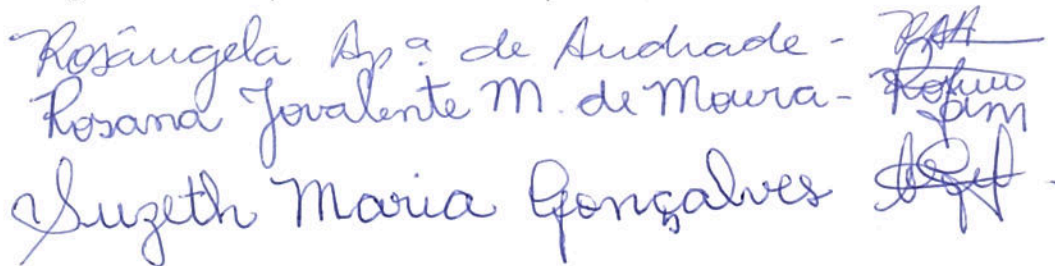 Rosângela Apª de Andrade -
Rosana Jovalente M. de Moura -
Suzeth Maria Gonçalves